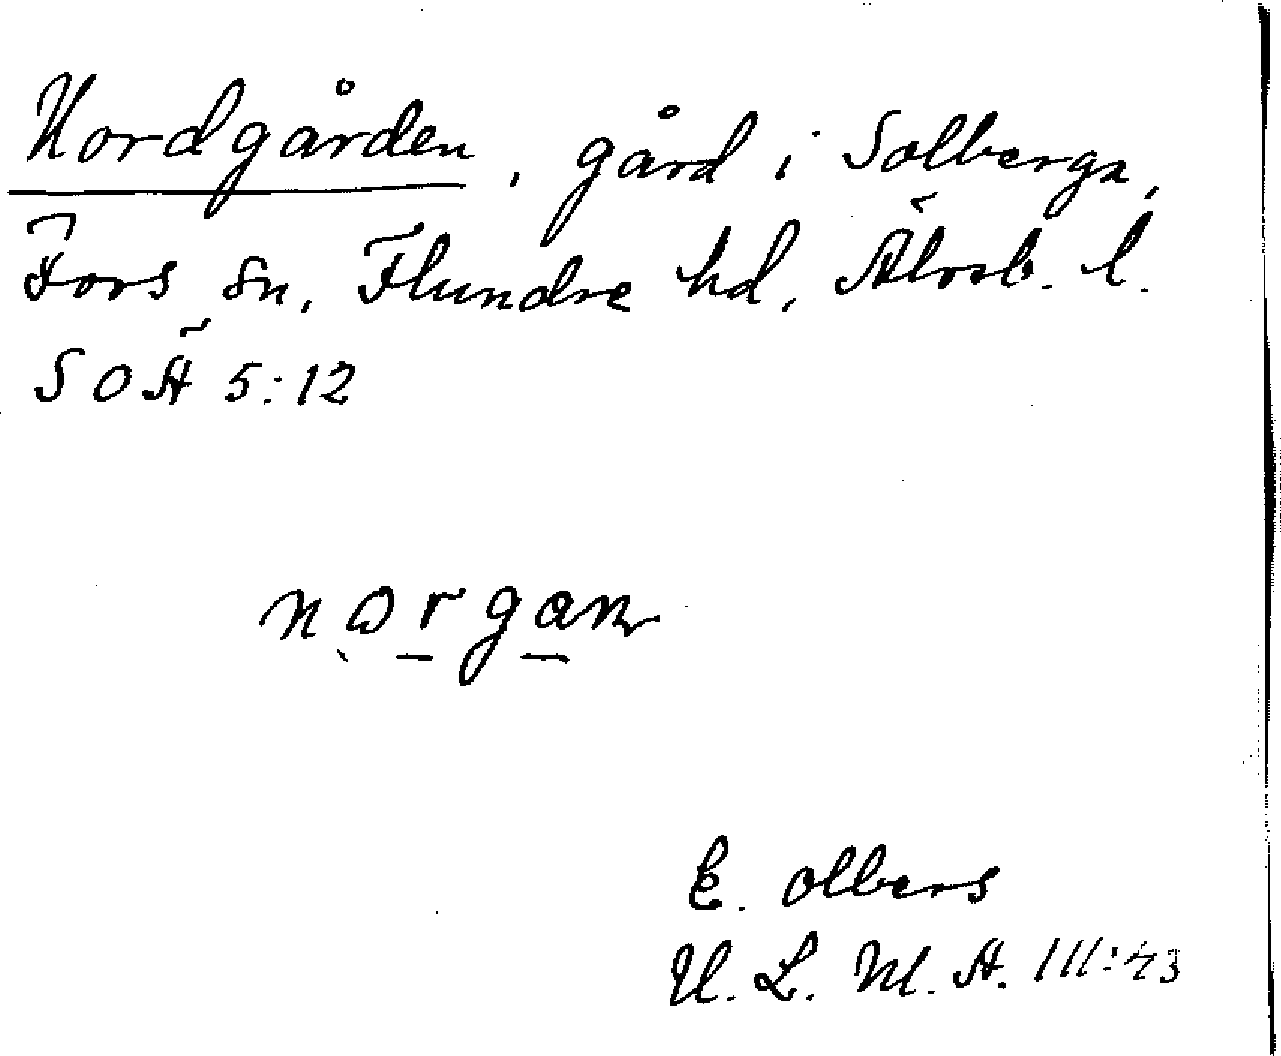 Nordgården, gård i Solberga,
Fors sn, Flundre hd, Älvsb. l.
SOÄ 5:12
norgan
E. Olbers
U. L. M. A. 111:43